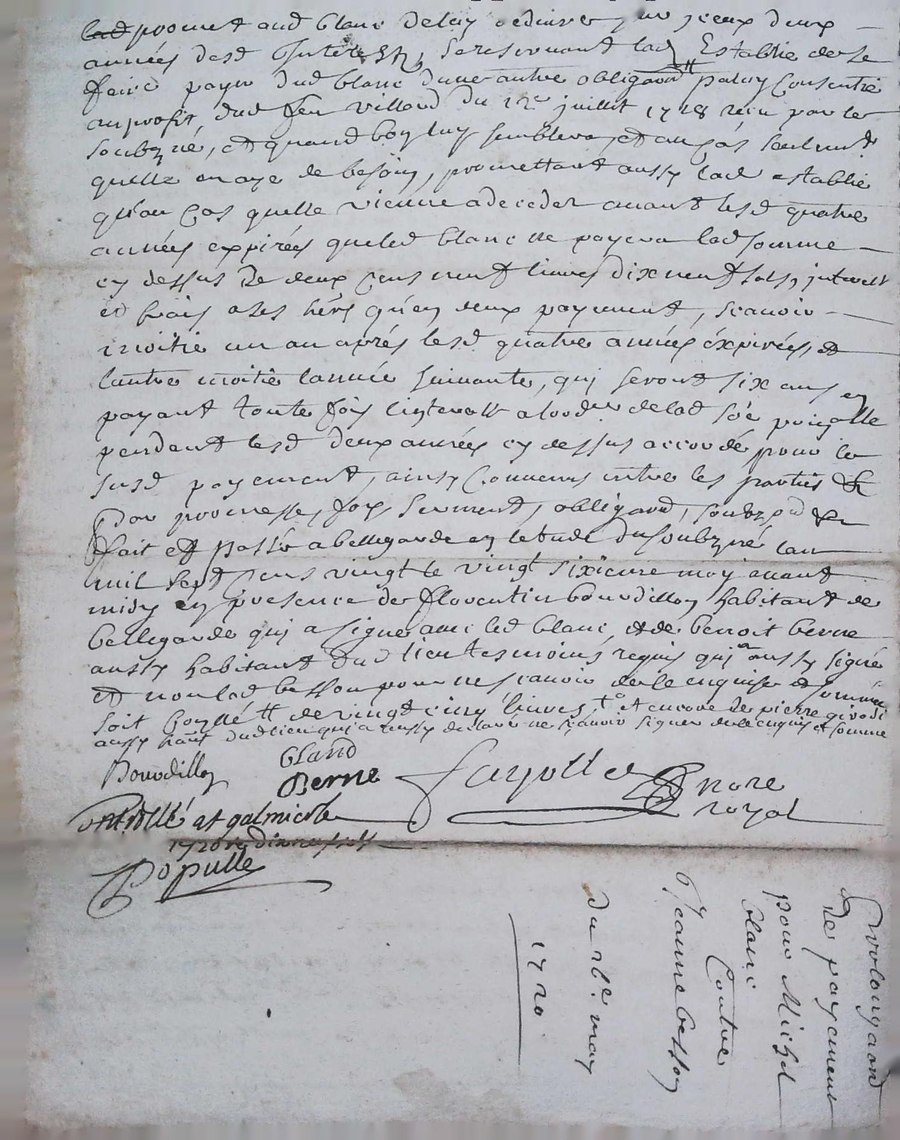 lad promet aud blanc delay dedin jceux deux
années desd Interestz, sereservant lad Establie de se
faire payer dud blanc dune autre obligaõn paluy Consentie
au proffit dud feu villard du 12e juillet 1718 receu par le
soubzné, et quand bon luy semblera, et au cas seulemt
quelle en aye de besoin, promettant aussy lad establie
qu'au cas quelle vienne a deceder avant lesd quatre
années expirées que led blanc ne payera lad somme
cy dessus De deux cens neuf livres dix neuf solz, jnterest
et frais a ses hers qu'en deux payement, scavoir
moitié un an après lesd quatre années éxpirées, et
lautre moitié lannée suivante, qui seront six ans en
payant toute fois linterestz de lad soe prinlle
pendent lesd deux années cy dessus accordé pour le
susd payement, ainsy Convenu entre les parties &
par promesse, foy, serment, obligaõn, soubz pd &
fait et Passé a bellegarde en lestude du soubzné lan
mil sept cens vingt le vingt sixieme may avant
midy en présence de florentin bourdillon habitant de
bellegarde qui a signé avec led blanc, et de benoit berne
aussy habitant dud lieu tesmoins requis qui a aussy signé
et non lad besson pour ne scavoir de ce enquise et sommée
soit Conllé de vingt cinq livres et encore de pierre givodi
aussy habnt dud lieu qui a ... ne scavoir signer de ce enquis et sommé
Bourdillon bland
Berne Fayolle nore
royal
Controllé a st galmier le
1720 r dix neuf sols
Populle
Prolongaõn
De payement
pour Michel
blanc
Contre
Jeanne besson
du 26e may
1720